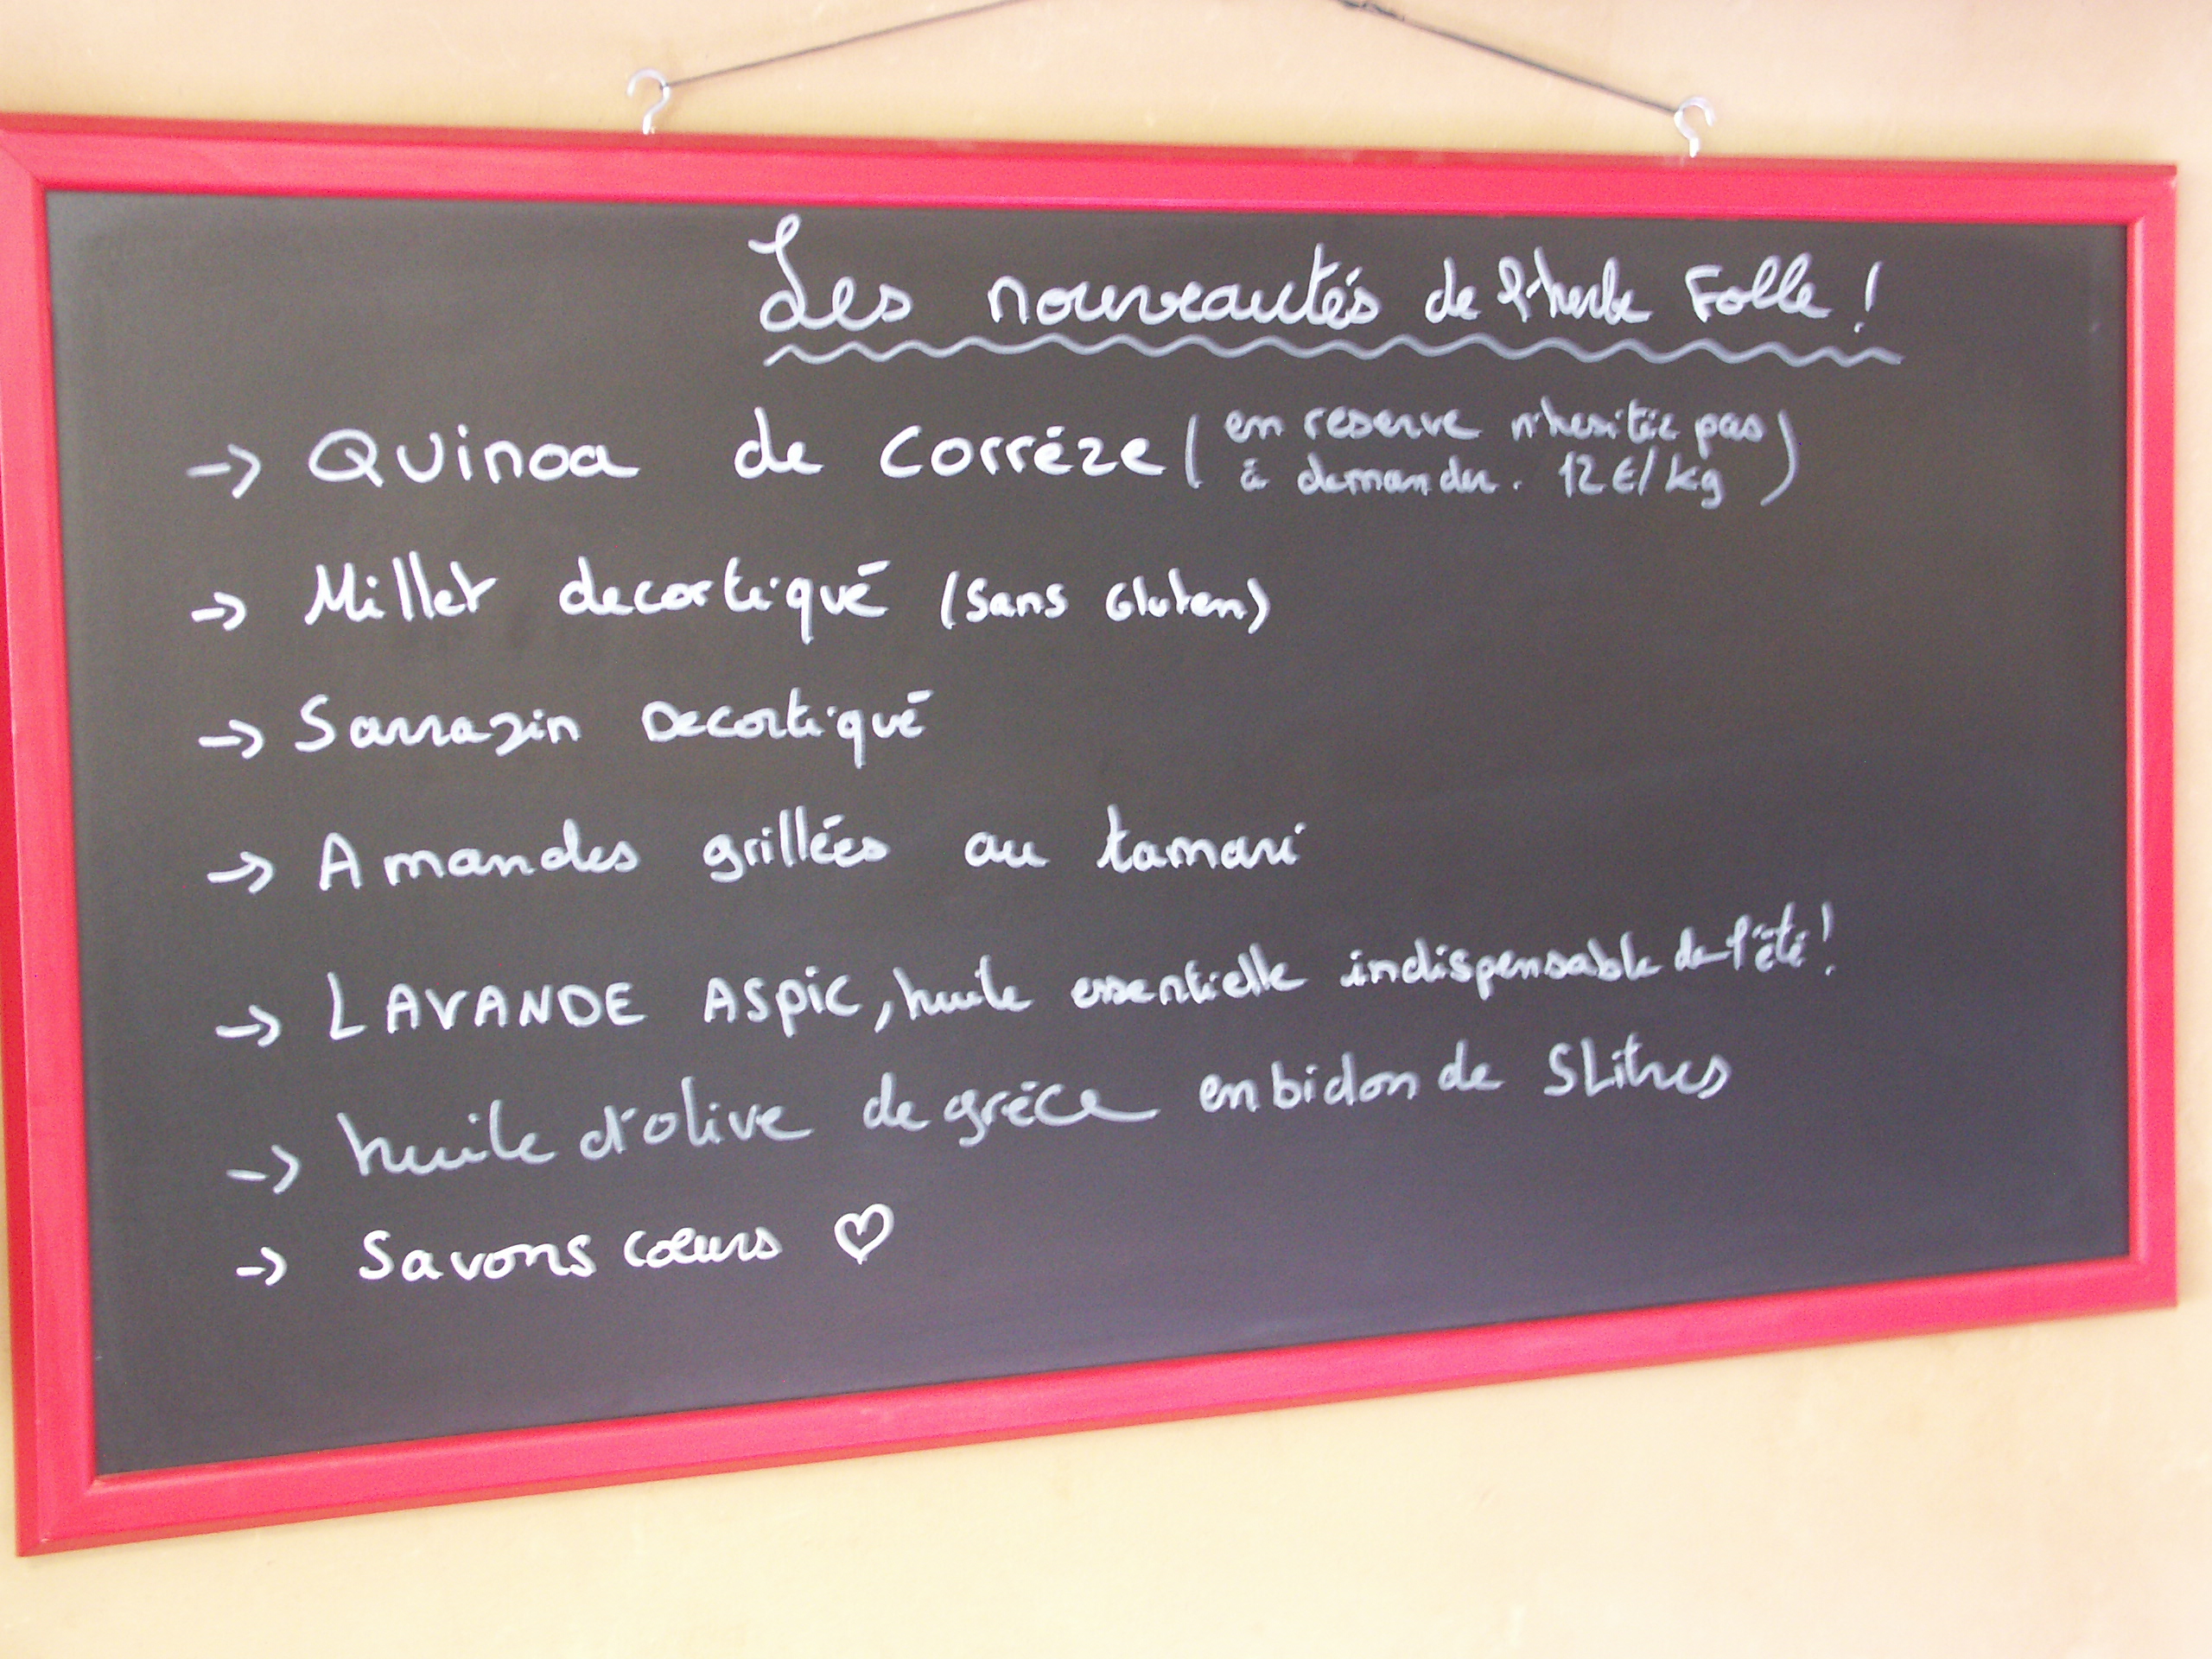 Les nouveautés de l'herbe Folle !
→ Quinoa de Corrèze (en reserve n'hesitéz pas
à demander. 12€/kg)
→ Millet decortiqué (Sans Gluten)
→ Sarrazin Decortiqué
→ Amandes grillées au tamari
→ LAVANDE ASpic, huile essentielle indispensable de l'été !
→ huile d'olive de grèce en bidon de 5Litres
→ Savons cœurs ♡